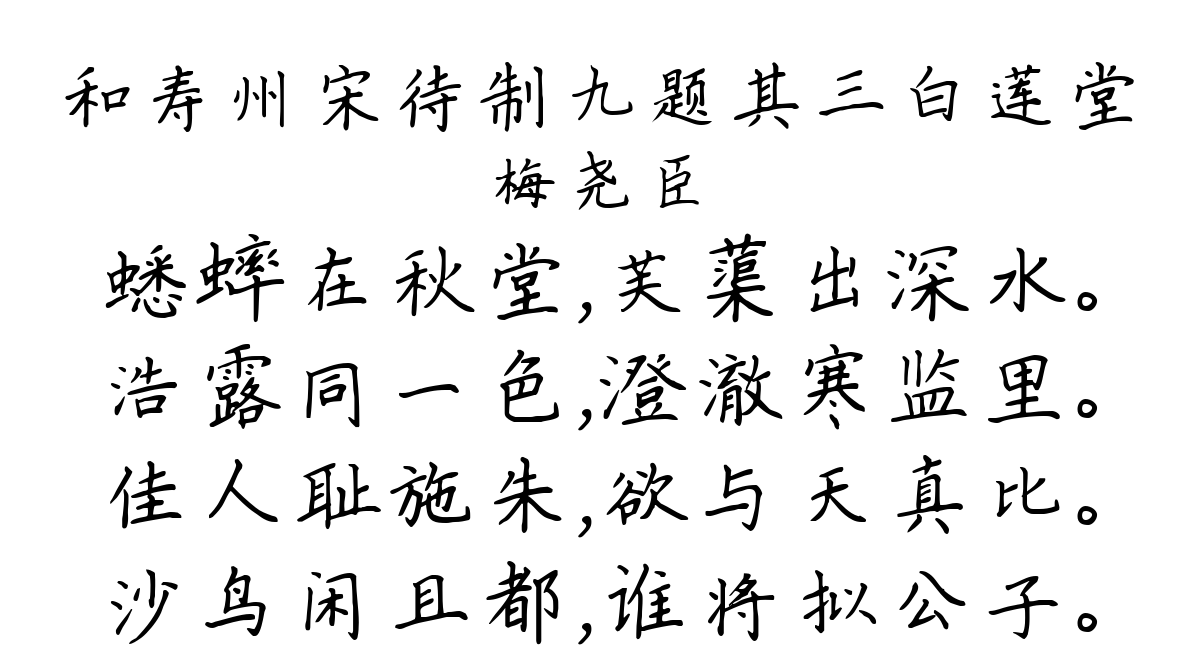 和寿州宋待制九题其三白莲堂
梅尧臣
蟋蟀在秋堂,芙蕖出深水。
浩露同一色,澄澈寒监里。
佳人耻施朱,欲与天真比。
沙鸟闲且都,谁将拟公子。